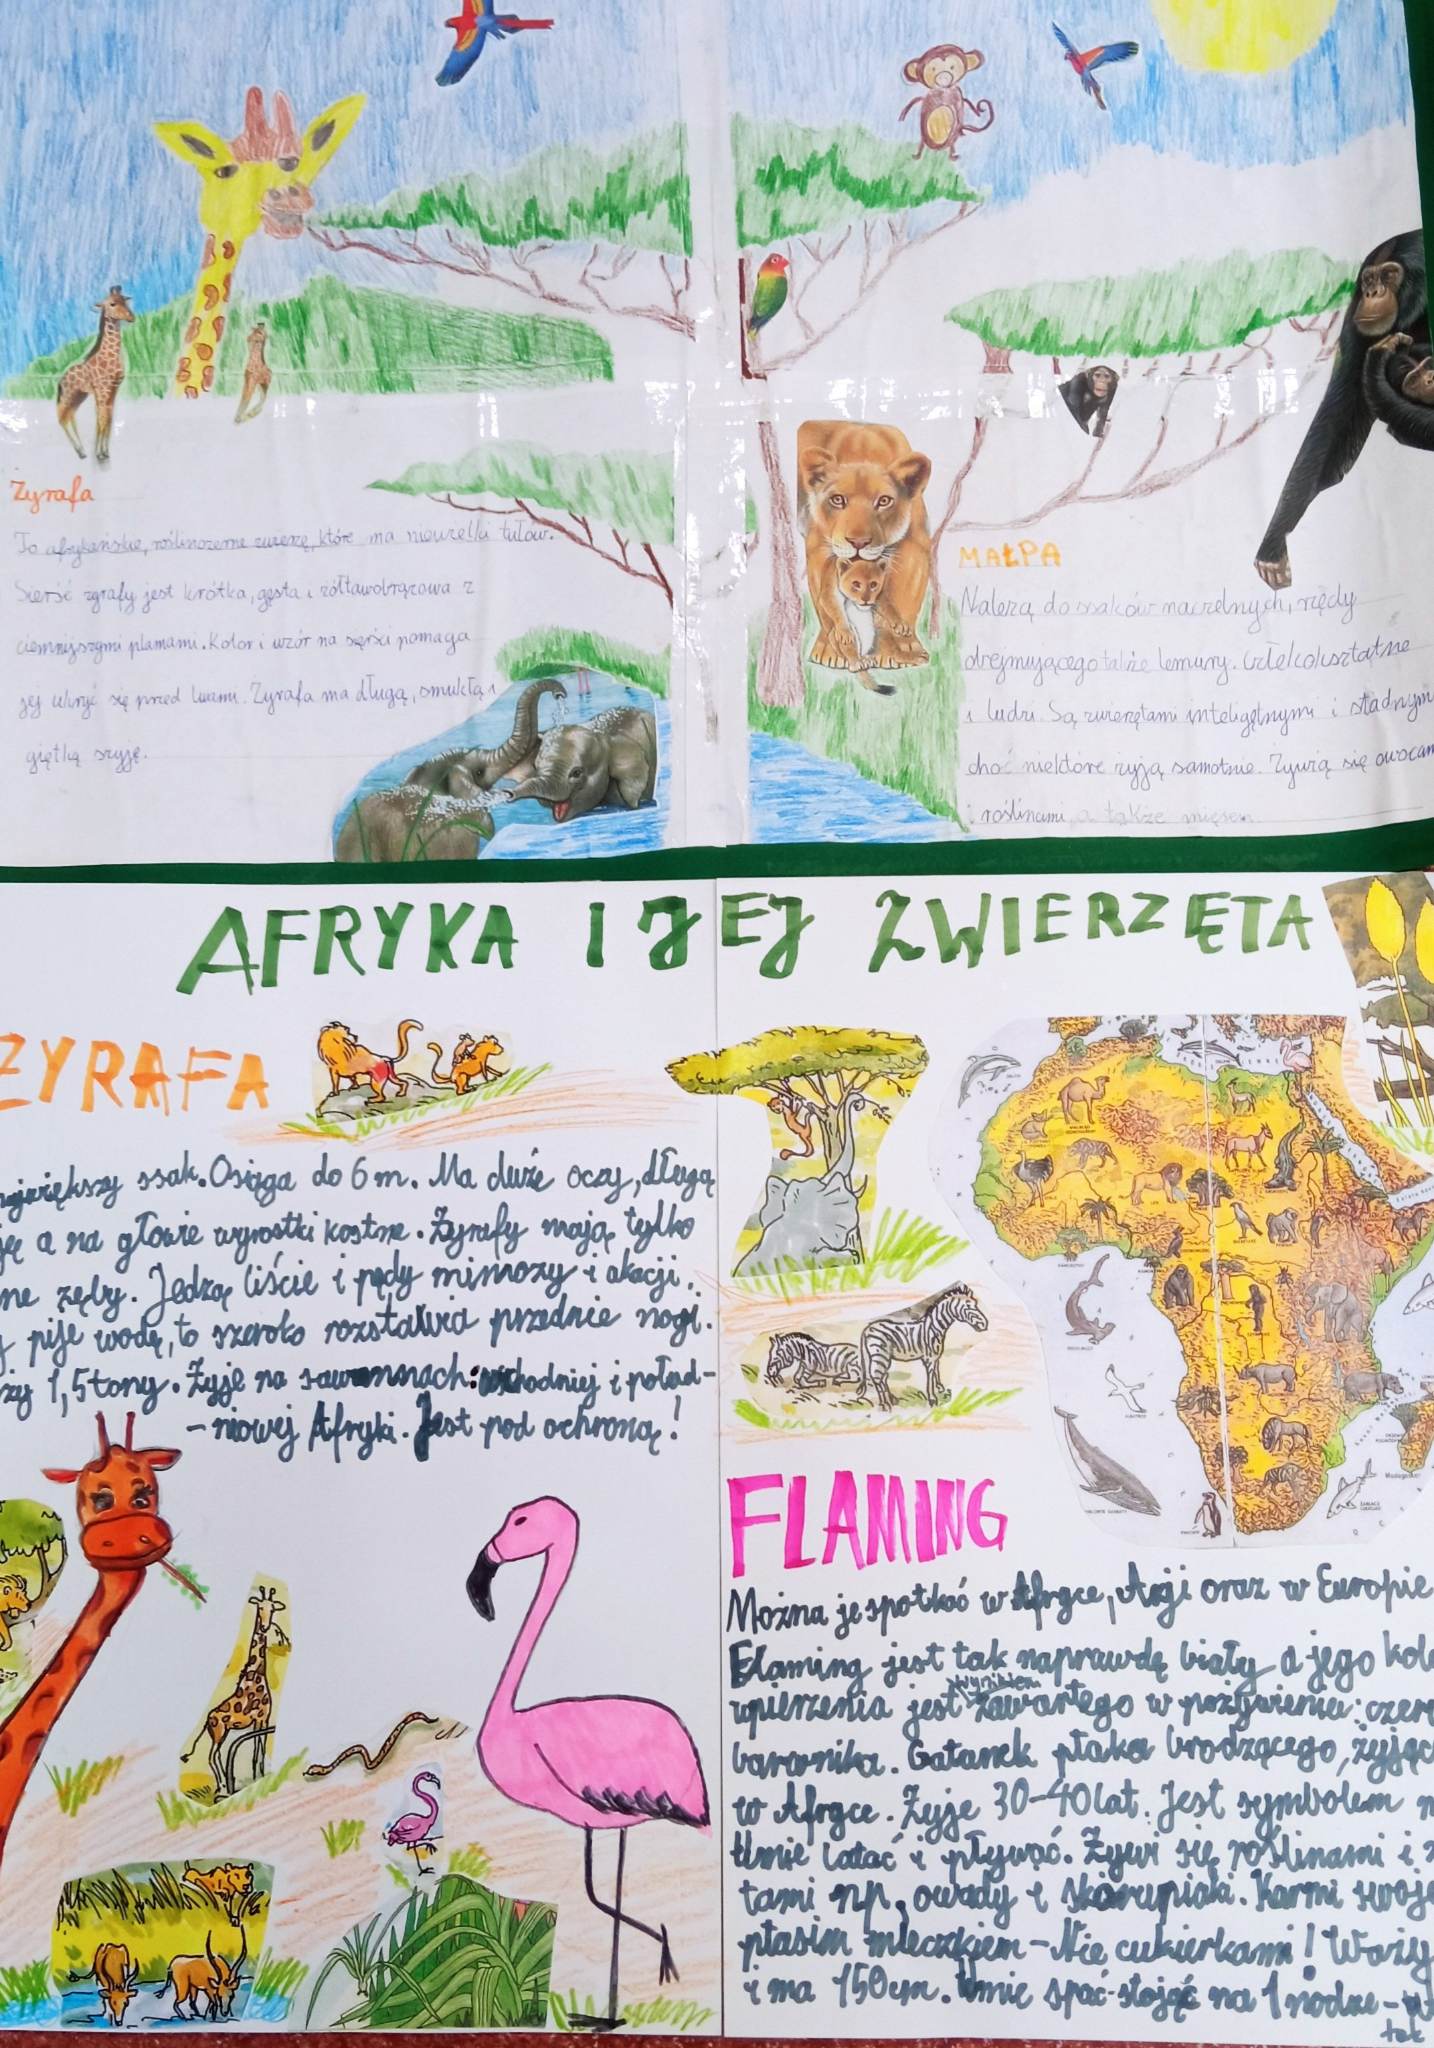 Żyrafa
To afrykańskie, roślinożerne zwierzę, które ma niewielki tułów.
Sierść żyrafy jest krótka, gęsta i żółtawobrązowa z
ciemniejszymi plamami. Kolor i wzór na sierści pomaga
jej ukryć się przed lwami. Żyrafa ma długą, smukłą i
giętką szyję.
MAŁPA
Należą do ssaków naczelnych, rzędy
obejmującego także lemury. człekokształtne
i ludzi. Są zwierzętami inteligętnymi i stadnym
choć niektóre żyją samotnie. Żywią się owocam
i roślinami, a także mięsem
AFRYKA I JEJ ZWIERZĘTA
ŻYRAFA
największy ssak. Osiąga do 6 m. Ma duże oczy, długą
ję a na głowie wyrostki kostne. Żyrafy mają tylko
ne zęby. Jedzą liście i pędy mimozy i akacji.
y pije wodę, to szeroko rozstawia przednie nogi.
ży 1,5 tony. Żyje na sawannach: wschodniej i połud-
-niowej Afryki. Jest pod ochroną!
FLAMING
Można je spotkać w Afryce, Azji oraz w Europie
Flaming jest tak naprawdę biały a jego kolo
upierzenia jest wynikiem zawartego w pożywieniu: czer
barwnika. Gatunek ptaka brodzącego, żyjąc
w Afryce. Żyje 30-40 lat. Jest symbolem
Umie latać i pływać. Żywi się roślinami i z
tami np. owady i skorupiaki. Karmi swoje
ptasim mleczkiem - Nie cukierkami! Waży
i ma 150 cm. Umie spać stojąc na 1 nodze -
tak